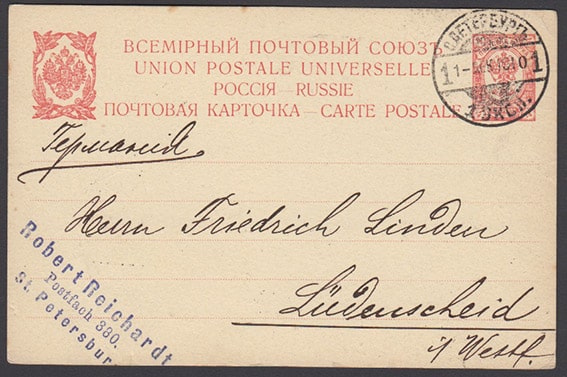 ВСЕМІРНЫЙ ПОЧТОВЫЙ СОЮЗЪ
UNION POSTALE UNIVERSELLE
РОССІЯ – RUSSIE
ПОЧТОВАЯ КАРТОЧКА – CARTE POSTALE
С.ПЕТЕРБУРГЪ
1
1
1 ЭКСП.
Германія
Herrn Friedrich Linden
Lüdenscheid
i/ Westf.
Robert Reichardt
Postfach 380.
St. Petersbur